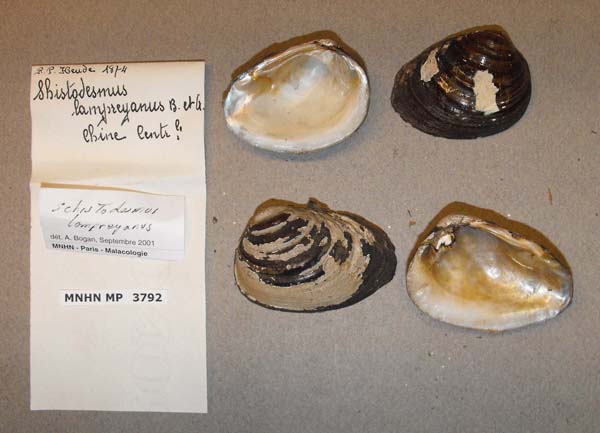 R. P. Heude 1874
Shistodesmus
lampreyanus B. et A.
Chine Centle
Schistodesmus
lampreyanus
dét. A. Bogan, Septembre 2001
MNHN - Paris - Malacologie
MNHN MP 3792